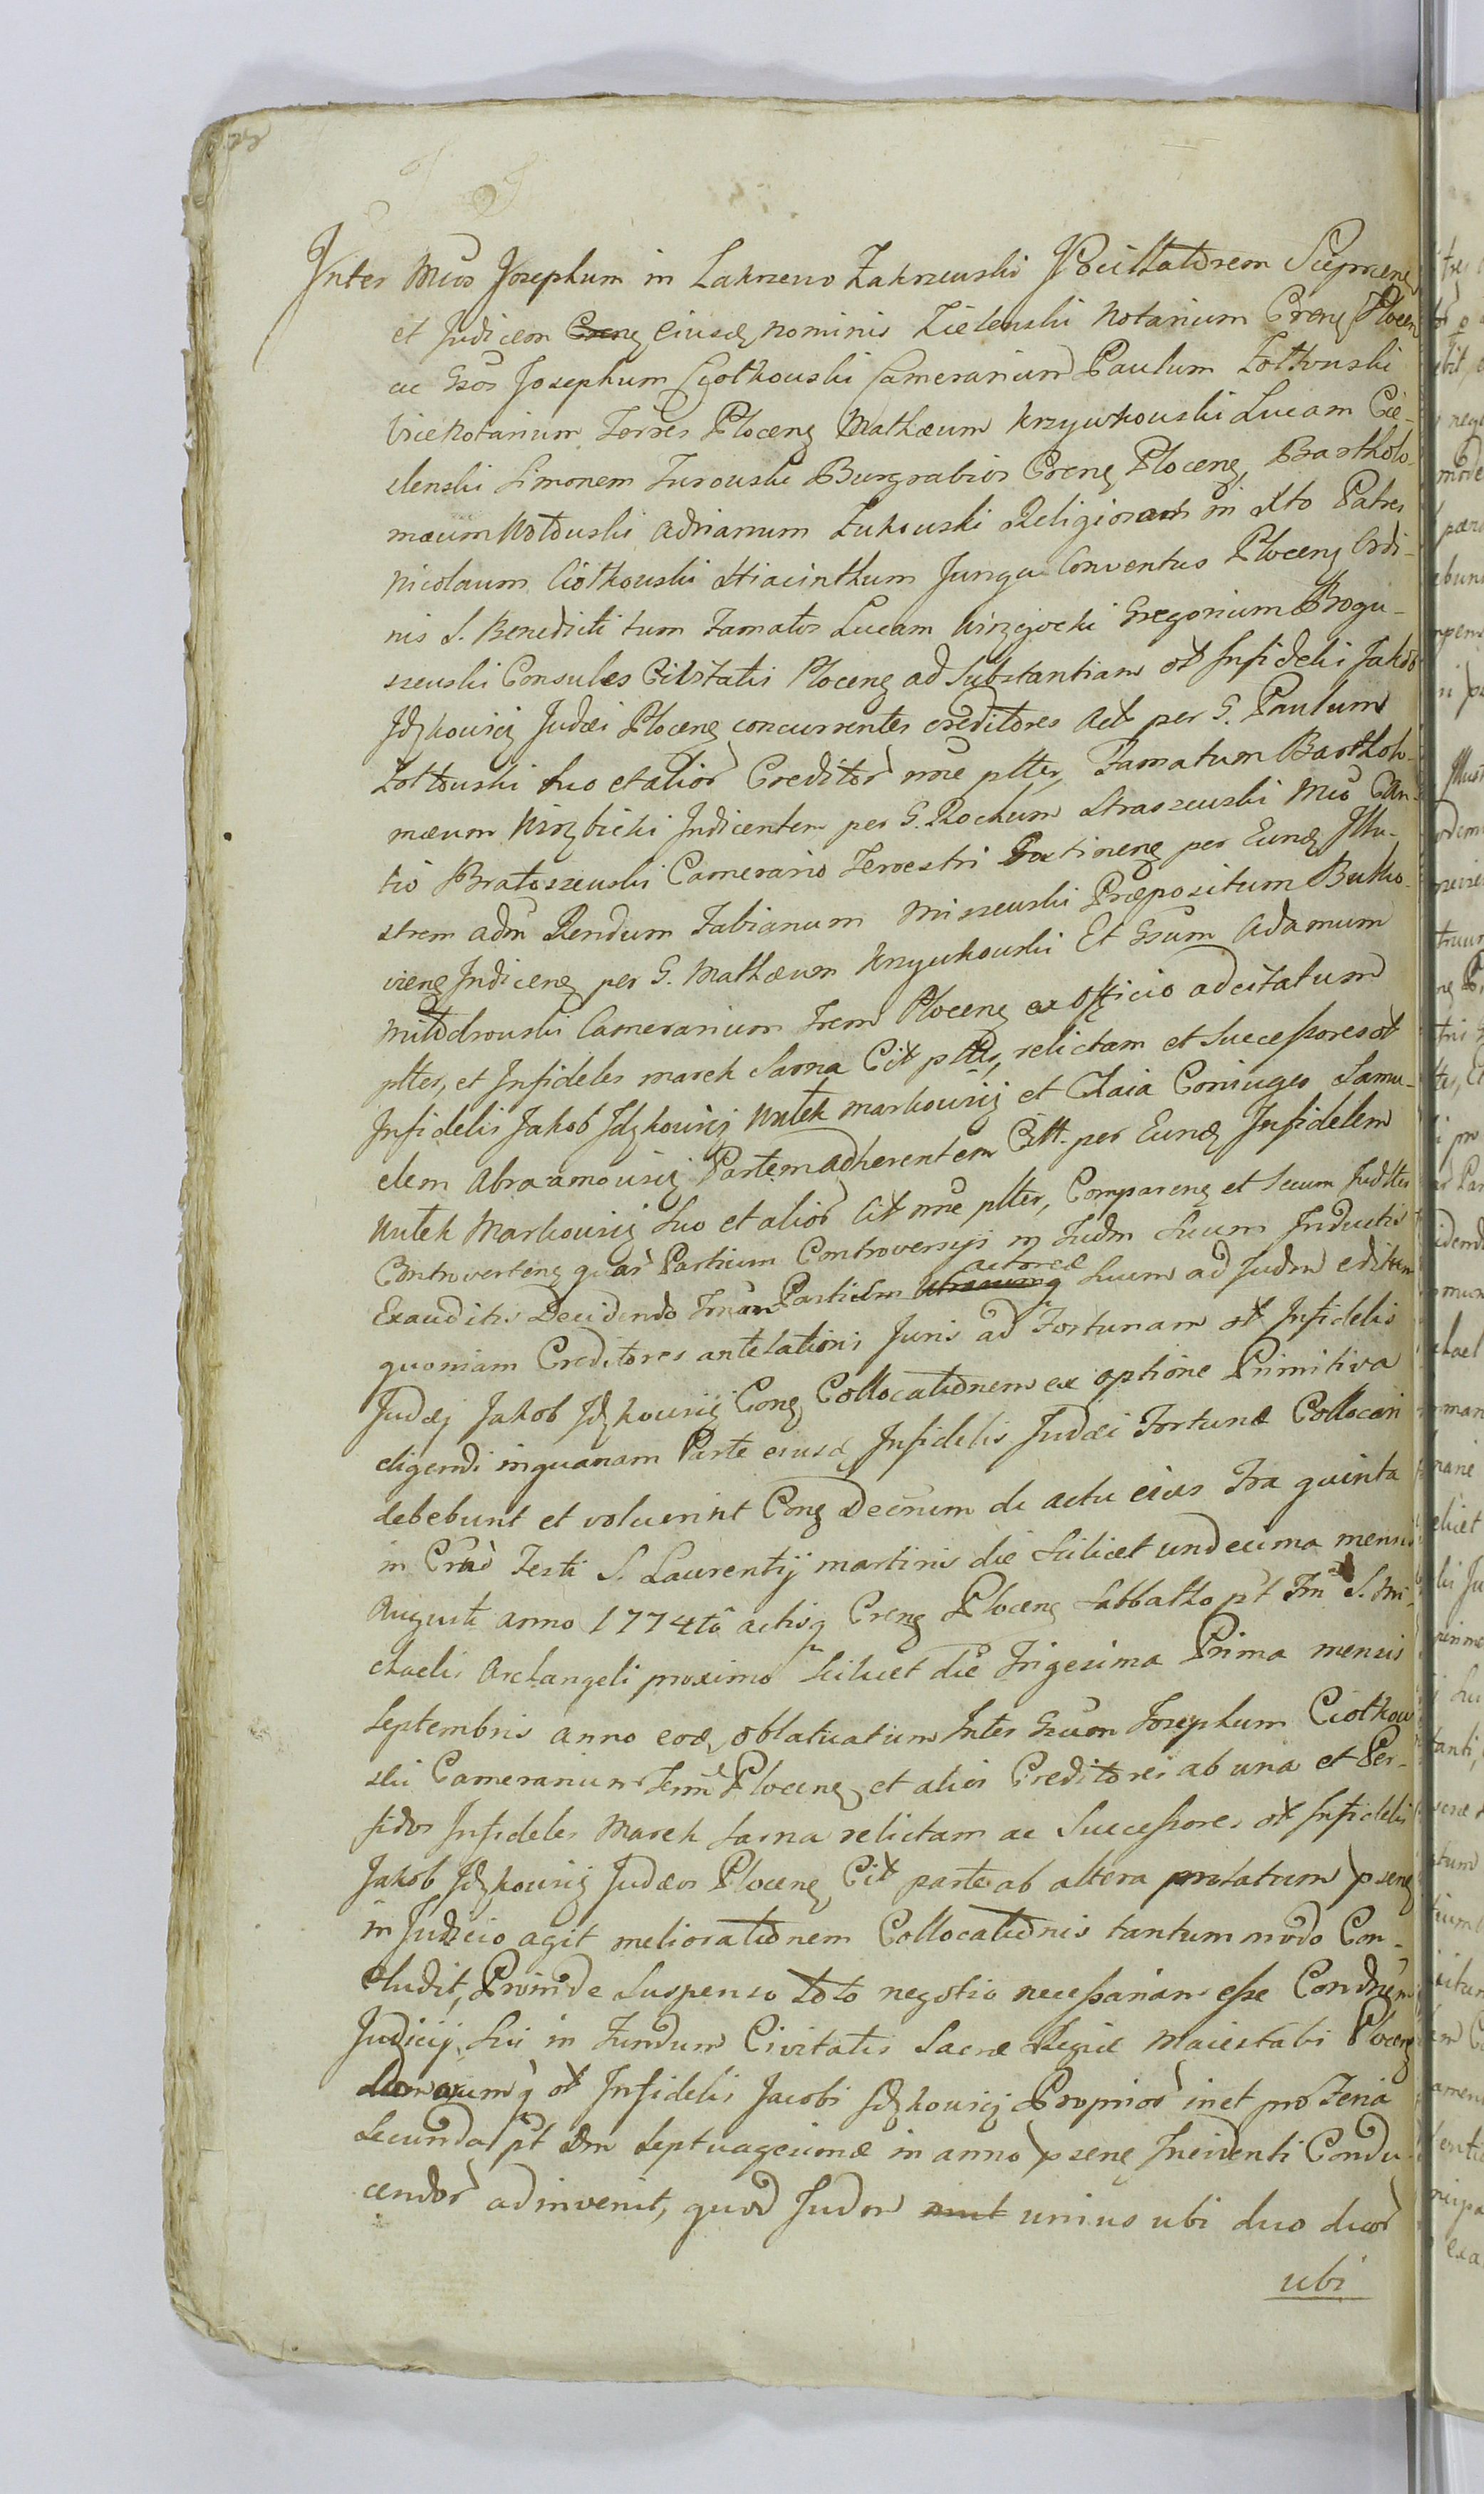 Inter Mcos Josephum in Zakrzewo Zakrzewski Scieprcenę
et Judicem Crenę Eiusdę nominis Zielenski Notarium Crenę Plocen
ac Gsos Josephum Ciołkowski Camerarium Paulum Zołtowski
ViceNotarium Terres Plocenę Mathæum Krzywkowski Lucam Cie-
slenski Simonem Zurowski Burgrabios Crenę Plocenę, Bartholo-
mæum Adrianum Zukowski Religiosos in Xto Patres
Nicolaum Ciołkowski Hiacinthum Junga Conventus Plocenę Ordi-
nis S. Benedicti tum Famatos Lucam Gregorium Bogu-
szewski Consules Civitatis Plocenę ad Substantiam ol Infidelis Jakob
Idzkowicz Judæi Plocenę concurrentes creditores Act per G. Paulum
Zołtowski suo et alior Creditor nne plter, Famatum Bartholo-
mæum Kirzbicki Indicentem per G. Rochum Straszewski Mco
tio Bratoszewski Camerario Terrestri Gostinenę per Eundę Illu-
strem adm Rendum Fabianum Miszewski Præpositum Bulko-
vienę Indicenę per G. Mathæum Krzywkowski Et Gsum Adamum
Milodrowski Camerarium Trem Plocenę ex Officio adcitatum
plter, et Infideles Marek Sarna Cit plter, relictam et Successores ol
Infidelis Jakob Idzkowicz Wulek Markowicz et Chaia Coniuges Samu-
elem Abraamowicz Partem adherentem Citt. per Eundę Infidelem
Wulek Markowicz Suo et alior Cit nne plter, Comparenę et Secum Juditer
Controvertenę quar Partium Controversijs in Judm Suum Inductis
Exauditis Decidendo Partium Utramq actoreæ Suum ad Judm editum
quoniam Creditores antelationis Juris ad Fortunam ol Infidelis
Judæj Jakob Idzkowicz Conę Collocationem ex optione Primitiva
eligendi inquanam Parte eiusdę Infidelis Judæi Fortunæ Collocari
debebunt et voluerint Conę Decrum de actu eius Fra quinta
in Crno Festi S. Laurentij martiris die Scilicet undecima mensis
Augusti anno 1774to actisq Crenę Plocenę Sabbatho pt Fm S. Mi-
chaelis Archangeli proximo Scilicet die Trigesima Prima mensis
Septembris anno eodę oblatuatum Inter Gsum Josephum Ciołkow
ski Camerarium Plocenę et alios Creditores ab una et Per-
fidos Infideles Marek Sarna relictam ac Successores ol Infidelis
Jakob Idzkowicz Judæos Plocenę Cit parte ab altera prolatum psenę
in Judicio agit meliorationem Collocationis tantummodo Con-
cludit, Proinde Suspenso toto negotio necessariam esse Condnem
Judicij Sui in Fundum Civitatis Sacræ Regiæ Maiestatis Plocenę
ol Infidelis Jacobi Idzkowicz Proprior inet pro Feria
Secunda pt Dm Septuagesimæ in anno psenę Ineventi Condu-
cendor adinvenit, quod Judm unius ubi duo duor
ubi